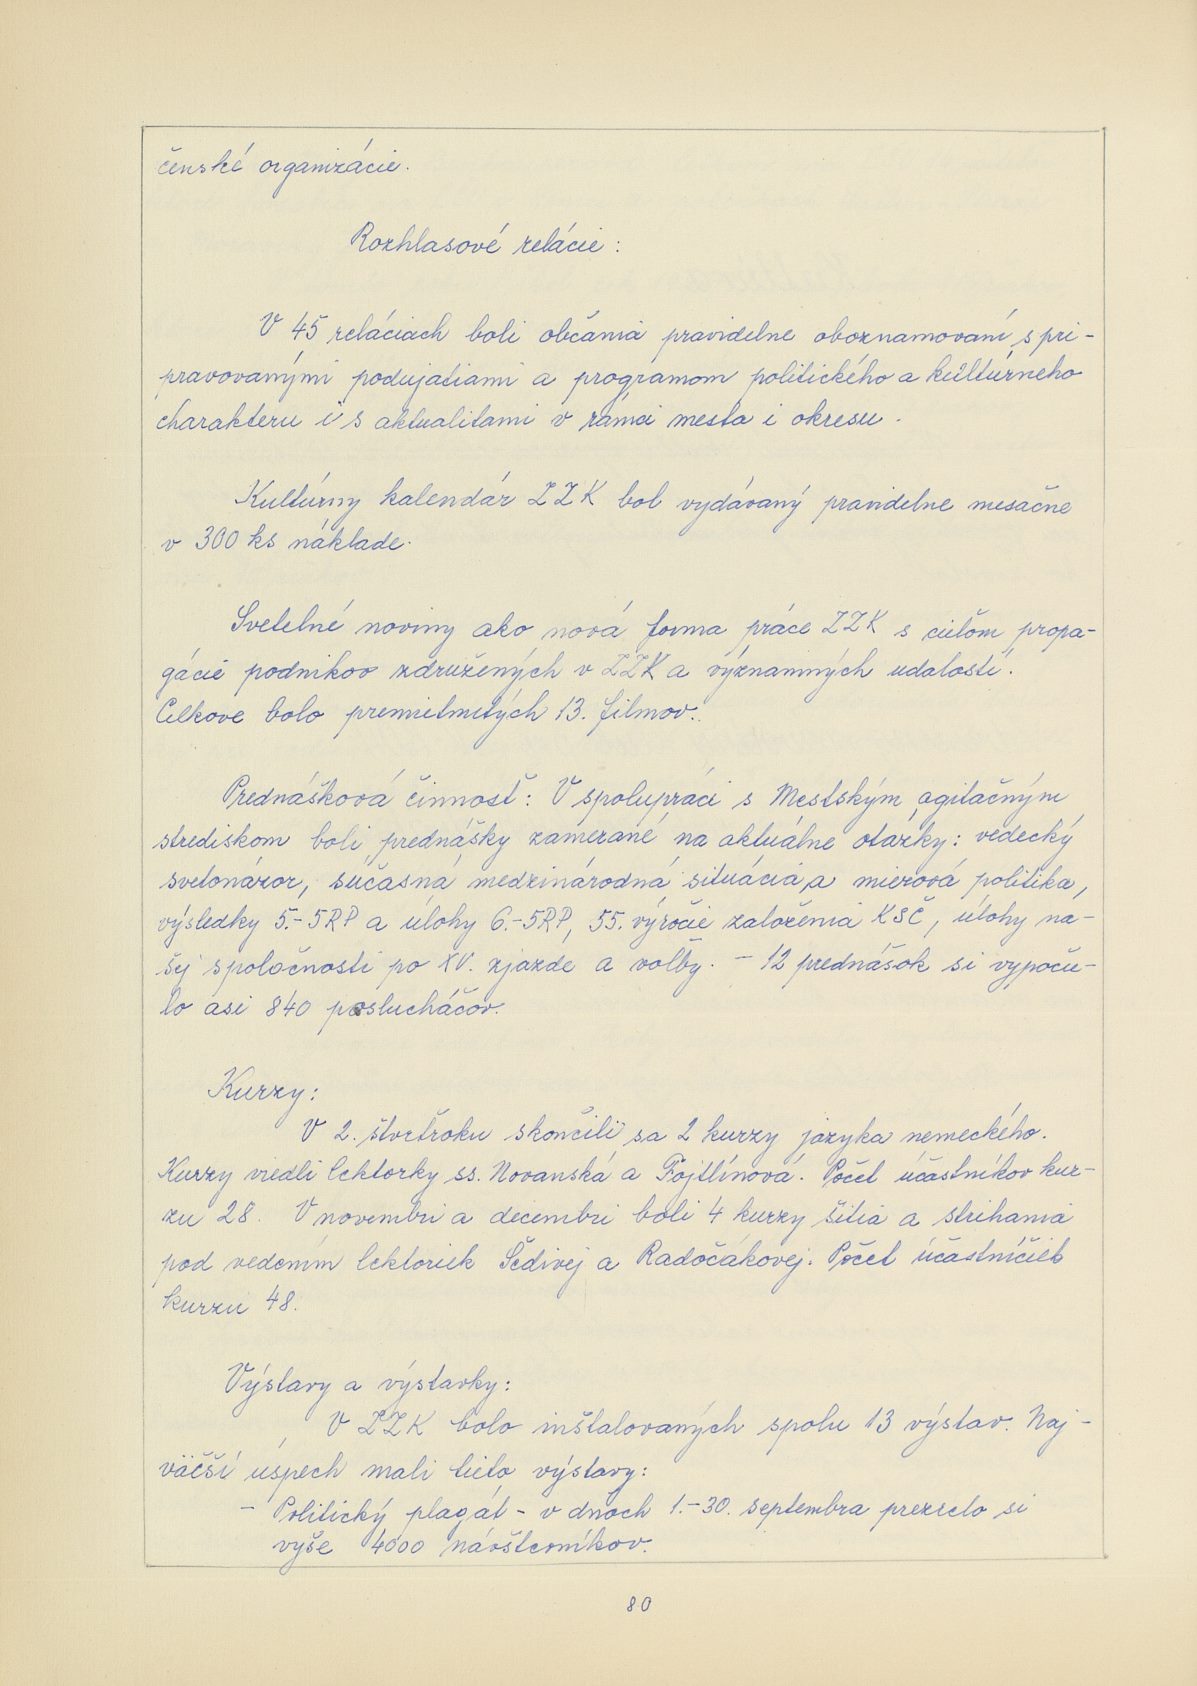 čenské organizácie.
Rozhlasové relácie :
V 45 reláciach boli občania pravidelne oboznamovaní s pri-
pravovanými podujatiami a programom politického a kultúrneho
charakteru i s aktualitami v rámci mesta i okresu.
Kultúrny kalendár ZZK bol vydávaný pravidelne mesačne
v 300 ks náklade.
Svetelné noviny ako nová forma práce ZZK s cieľom propa-
gácie podnikov združených v ZZK a významných udalostí.
Celkove bolo premietnutých 13. filmov.
Prednášková činnosť: V spolupráci s Mestským agitačným
strediskom boli prednášky zamerané na aktuálne otázky: vedecký
svetonázor, súčasná medzinárodná situácia, a mierová politika,
výsledky 5.-5RP a úlohy 6.-5RP, 55. výročie založenia KSČ, úlohy na-
šej spoločnosti po XV. zjazde a voľby. - 12 prednášok si vypoču-
lo asi 840 poslucháčov.
Kurzy:
V 2. štvrťroku skončili sa 2 kurzy jazyka nemeckého.
Kurzy viedli lektorky ss. Novanská a Fojtlínová. Počet účastníkov kur-
zu 28. V novembri a decembri boli 4 kurzy šitia a strihania
pod vedením lektoriek Šedivej a Radočákovej. Počet účastníčieb
kurzu 48.
Výstavy a výstavky:
V ZZK bolo inštalovaných spolu 13 výstav. Naj-
väčší úspech mali tieto výstavy:
- Politický plagát - v dňoch 1.-30. septembra prezrelo si
vyše 4000 návštevníkov.
80